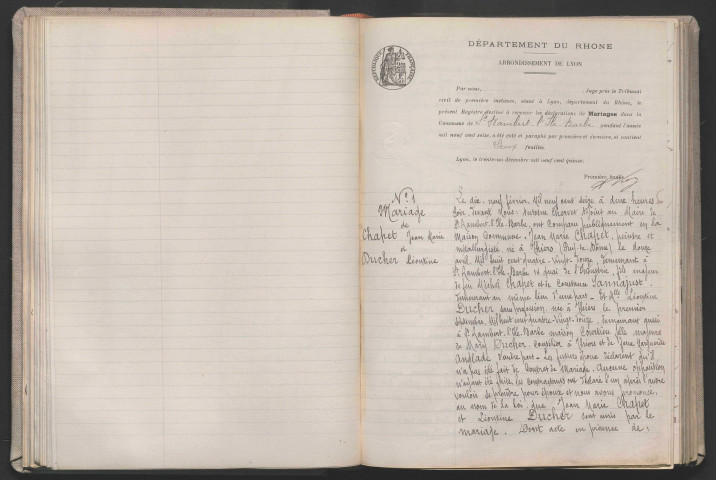 DÉPARTEMENT DU RHONE
ARRONDISSEMENT DE LYON
RÉPUBLIQUE FRANÇAISE
Par nous, , Juge près le Tribunal
civil de première instance, séant à Lyon, département du Rhône, le
présent Registre destiné à recevoir les déclarations de Mariages dans la
Commune de St Rambert l'Ile Barbe pendant l'année
mil neuf cent seize, a été coté et paraphé par première et dernière, et contient
feuilles.
Lyon, le trente-un décembre mil neuf cent quinze.
Première feuille
N° 1
Mariage
de
Chapet Jean Marie
et
Ducher Léontine
Le dix-neuf février mil neuf cent seize à deux heures du
soir, devant Nous, Antoine adjoint au Maire de
St Rambert l'Ile-Barbe, ont comparu publiquement en la
Maison Commune, Jean Marie Chapet, peintre en
né à Thiers (Puy-de-Dôme) le douze
avril mil huit cent quatre-vingt-douze, demeurant à
St Rambert l'Ile-Barbe 16 quai de l'Industrie, fils majeur
de feu Michel Chapet et de Constance Sannajust,
demeurant au même lieu d'une part - Et Dlle Léontine
Ducher sans profession, née à Thiers le premier
septembre mil huit cent quatre-vingt-douze, demeurant aussi
à St Rambert l'Ile-Barbe maison fille majeure
de Ducher, à Thiers et de Marguerite
d'autre part - Les futurs époux déclarent qu'il
n'a pas été fait de Contrat de Mariage. Aucune opposition
n'ayant été faite, les contractants ont déclaré l'un après l'autre
vouloir se prendre pour époux et nous avons prononcé,
au nom de la loi, que Jean Marie Chapet
et Léontine Ducher sont unis par le
mariage. Dont acte en présence de :